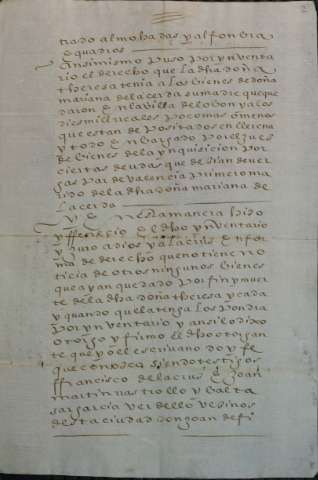 trado almohadas y alfonbra
o quadros
Ansimismo puso por ynventa
rio el derecho que la dha doña
theresa tenia a los bienes de doña
mariana de la cerda su madre que que
daron en la villa de lobon y a los
diez mill reales poco mas o menos
que estan depositados en llerena
y todo enbargado por el juez
de bienes de la ynquisicion por
ciertas deudas que dejan de ver
gas par de valencia primero ma
rido de la dha doña mariana de
la cerda
y en esta manera hiço
y feneçio el dho ynventario
y juro a dios y a la cruz en for
ma de derecho que no tiene no
ticia de otros ningunos bienes
que ayan quedado por fin y muer
te de la dha doña theresa y cada
y quando que la tenga los pondra
por ynventario y ansi lo dixo
otorgo y firmo el dho otorgan
te que yo el escriuano doy fe
que conosco siendo testigos
francisco de la cruz e joan
martin nastrollo y balta
sar garcia verdello vezinos
desta ciudad don joan de fi